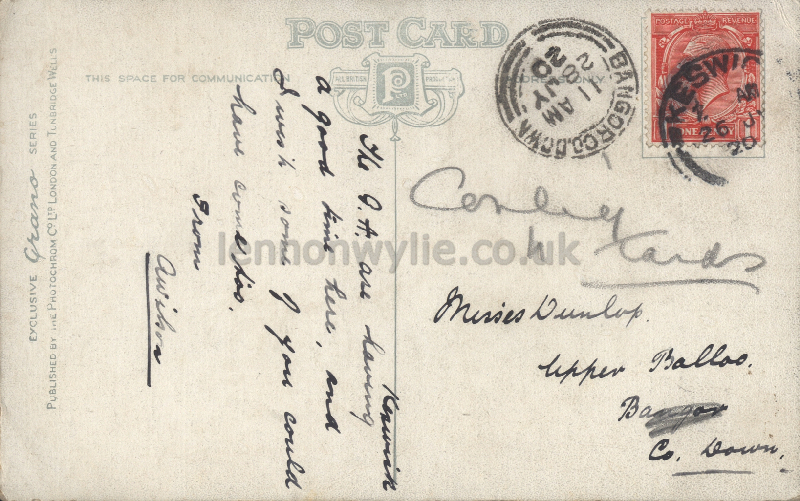 POST CARD
THIS SPACE FOR COMMUNICATION
ADDRESS ONLY
ALL BRITISH
P
EXCLUSIVE Grano SERIES
PUBLISHED BY THE PHOTOCHROM CO. LTD. LONDON AND TUNBRIDGE WELLS
BANGOR CO. DOWN
11 AM
JY
20
POSTAGE REVENUE
ONE PENNY
KESWIC
26 JY
20
Keswick
The G.A. are having
a good time here, and
I wish some of you could
have come also.
From
AWilson
Conley
Yards
Misses Dunlop.
Upper Balloo.
Bangor
Co. Down.
lennonwylie.co.uk